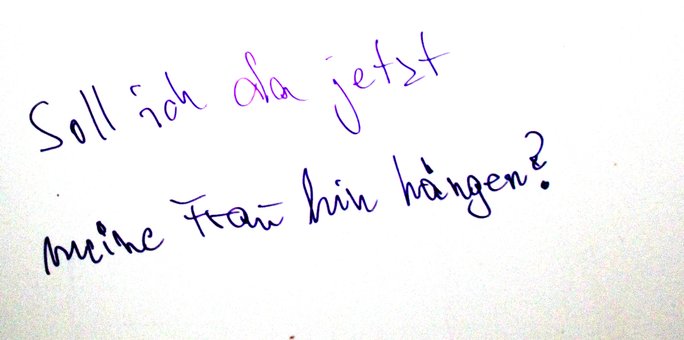 Soll ich da jetzt
meine Frau hin hängen?